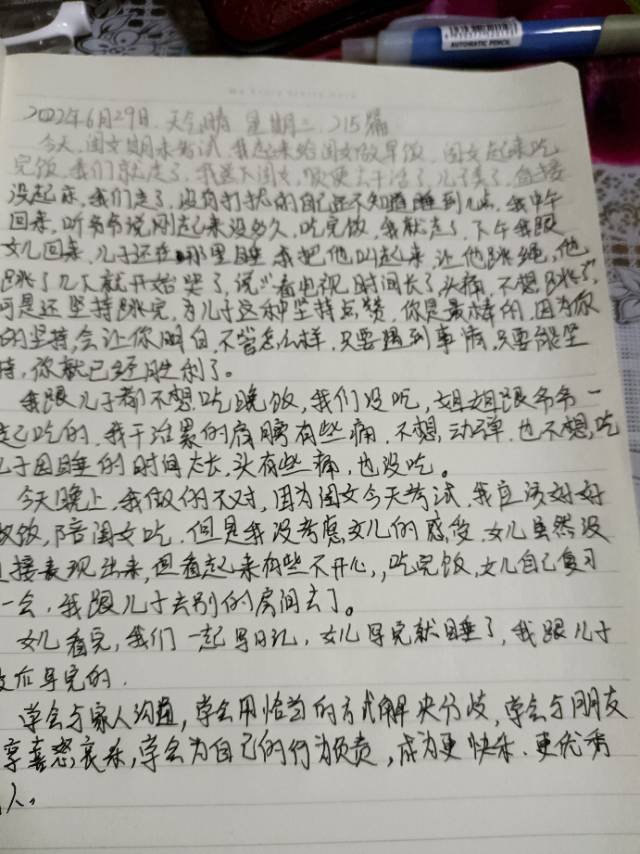 AUTOMATIC PENCIL
2022年6月29日. 天气晴 星期三 215篇
今天,闺女期末考试,我起来给闺女做早饭,闺女起来吃
完饭,我们就走了,我送下闺女,顺便去干活了,儿子
没起床,我们走了,没有打扰的自己还不知道睡到几点,我中午
回来,听爷爷说刚起来没多久,吃完饭,我就走了,下午我跟
女儿回来,儿子还在那里睡,我把他叫起来,让他跳绳,他
跳了几下就开始哭了,说:"看电视时间长了头痛,不想跳了",
可是还坚持跳完,为儿子这种坚持点赞,你是最棒的,因为你
的坚持,会让你明白,不管怎么样,只要遇到事情,只要能坚
持,你就已经胜利了。
我跟儿子都不想吃晚饭,我们没吃,姐姐跟爷爷一
起吃的,我干活累的肩膀有些痛,不想动弹,也不想,吃
儿子因睡的时间太长,头有些痛,也没吃。
今天晚上,我做的不对,因为闺女今天考试,我应该好好
做饭,陪闺女吃,但是我没考虑女儿的感受,女儿虽然没
直接表现出来,但看起来有些不开心,,吃完饭,女儿自己复习
一会,我跟儿子去别的房间去了。
女儿看完,我们一起写日记,女儿写完就睡了,我跟儿子
最后写完的.
学会与家人沟通,学会用恰当的方式解决分歧,学会与朋友
享喜怒哀乐,学会为自己的行为负责,成为更快乐.更优秀
人。